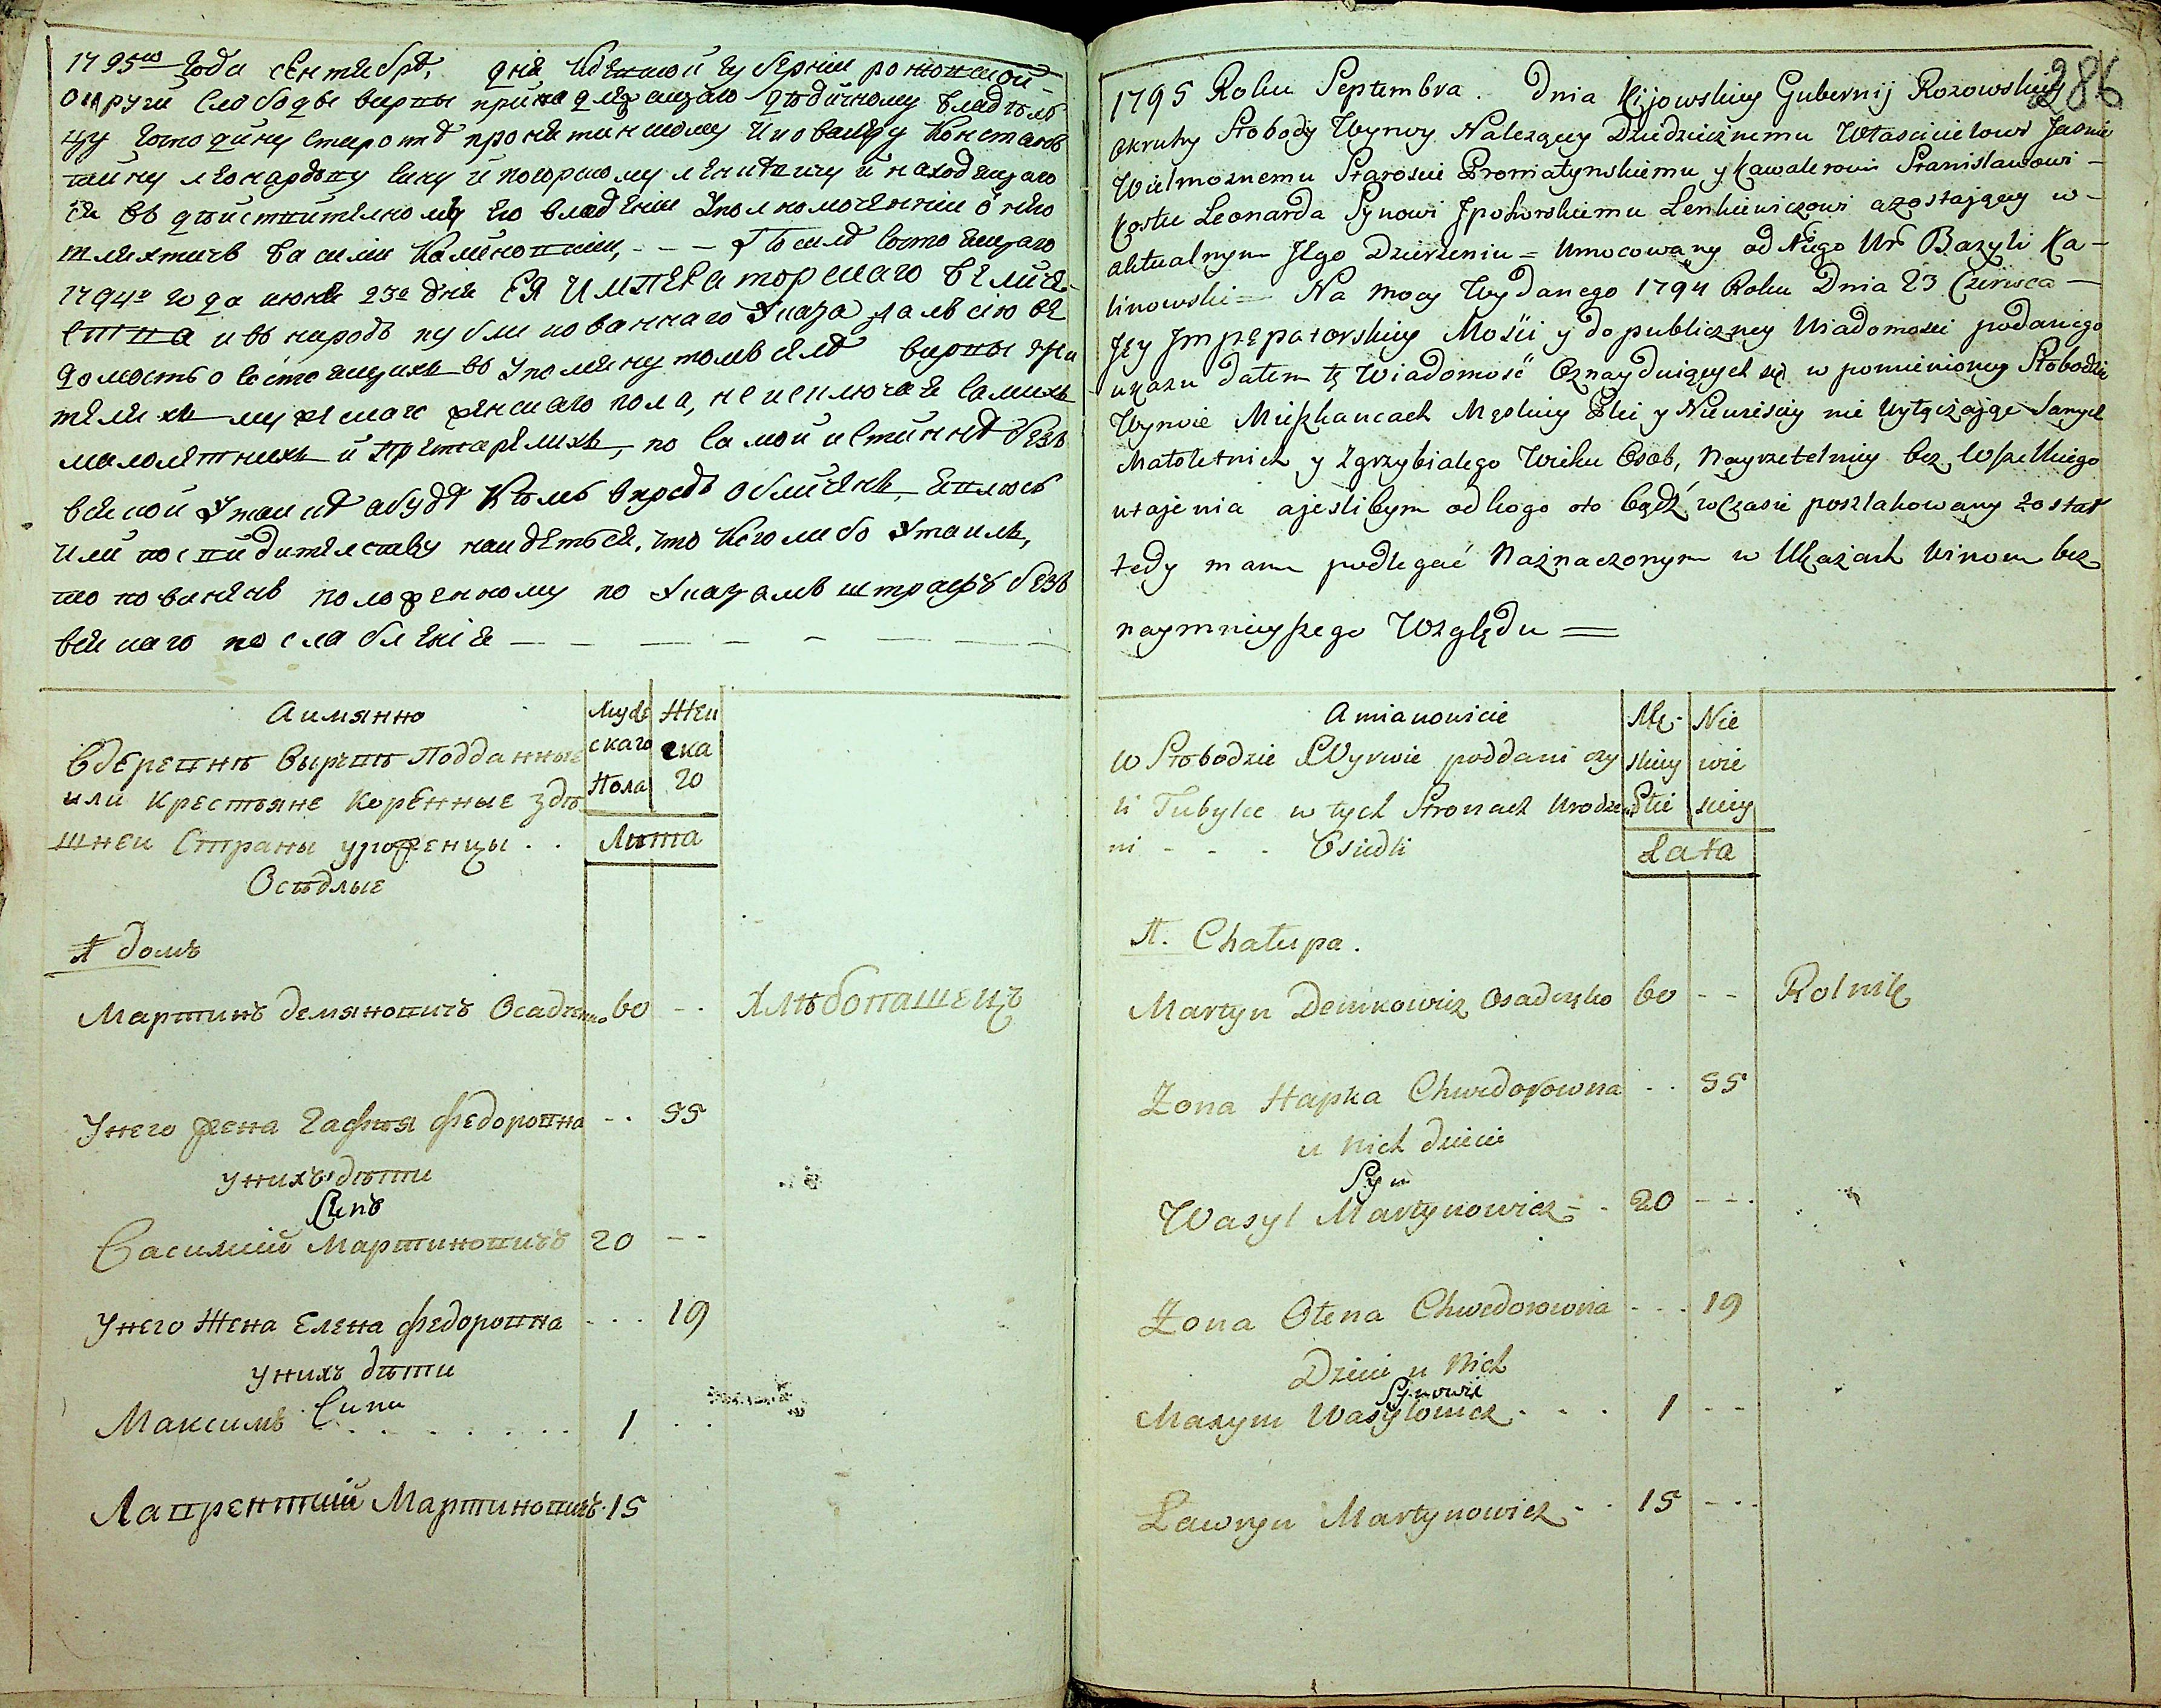 1795го Года сентебрѣ, дня Кіевской губерніи рожовской
округи Слободы вирвы принадлежащаго дѣдичному владѣль
цу господину старостѣ пронятинскому и кавалеру Констан
тину леонардову сину ипогорскому ленкевичу и находящаго
ся въ дѣйствителномъ его владеніи уполномоченній о него
шляхтичъ василий Калѣновский, - - - По силѣ состоящаго
1794го года июня 23го дня ЕЯ ИМПЕРаторскаго величе
ства и въ народъ публикованнаго указа далъ сію вѣ
домость о состоящихъ во упомянутомъ селѣ вирвы жи
телихъ мужеска женскаго пола, не исключая самихъ
малолѣтнихъ и престарелихъ, по самой истиннѣ безъ
всякой утайкѣ а будѣ кѣмъ впредъ обличенъ, явлюсь
или по свидителству найдеться, что кого либо утаилъ,
то повиненъ положенному по указамъ штрафу безъ
всякаго послабленія
Аимянно
Муже Жен
скаго ска
Пола го
Лѣта
Вдеревнѣ вырвѣ Подданные
или крестьяне коренные здѣ
шнеи Страны уроженцы . .
Осѣдлые
А домъ
Мартинъ демяновичъ Осадченко 60 - - хлѣбопашецъ
Унего жена Гафия Федоровна - - 55
унихъ дѣти
Синъ
Василий Мартиновичъ 20 - -
Унего Жена Елена Федоровна - - - 19
унихъ дѣти
Сини
Максимъ . . . . . . 1 . .
Лаврентий Мартиновичъ 15
286
1795 Roku Septembra. Dnia Kijowskiey Gubernij Rozowskiey
okruhy Słobody Wyrwy Nalezącey Dziedzicznemu Włascicielowi Jasnie
Wielmoznemu Staroscie Proniatynskiemu y kawalerowi Stanisławowi -
Kostce Leonarda Synowi Jpohorskiemu Lenkiewiczowi a zostającey w -
aktualnym Jego Dzierzeniu = Umocowany od Niego Ur Bazyli Ka-
linowski = Na mocy Wydanego 1794 Roku Dnia 23 Czerwca -
Jey Jmperatorskiey Mości y do publiczney Wiadomosci podanego
ukazu dałem tę Wiadomość Oznayduiących się w pomienioney Słobodzie
Wyrwie Mieszkancach Męskiey Płci y Niewiesciey nie wyłączaiąc Samych
Małoletnich y Zgrzybialego Wieku Osob, Nayrzetelniey bez Wszelkiego
utajenia a jeslibym od kogo oto bądź wczasie poszlakowany został
tedy mam podlegać Naznaczonym w Ukazach Winom bez
naymnieyszego Względu =
Amianowicie
Mę- Nie
skiey wie
Płci sciey
Łata
W Słobodzie Wyrwie poddani czy
li Tubylce w tych Stronach Urodze
ni - - - Osiedli
A. Chałupa.
Martyn Demkowicz Osadczko 60 - - Rolnik
Zona Hapka Chwedorowna - - 55
u Nich dzieci
Syn
Wasyl Martynowicz - . 20 - - -
Zona Ołena Chwedorowna - - - 19
Dzieci u Nich
Synowie
Maxym Wasylowicz . . . 1 - -
Ławryn Martynowicz - . 15 - - -